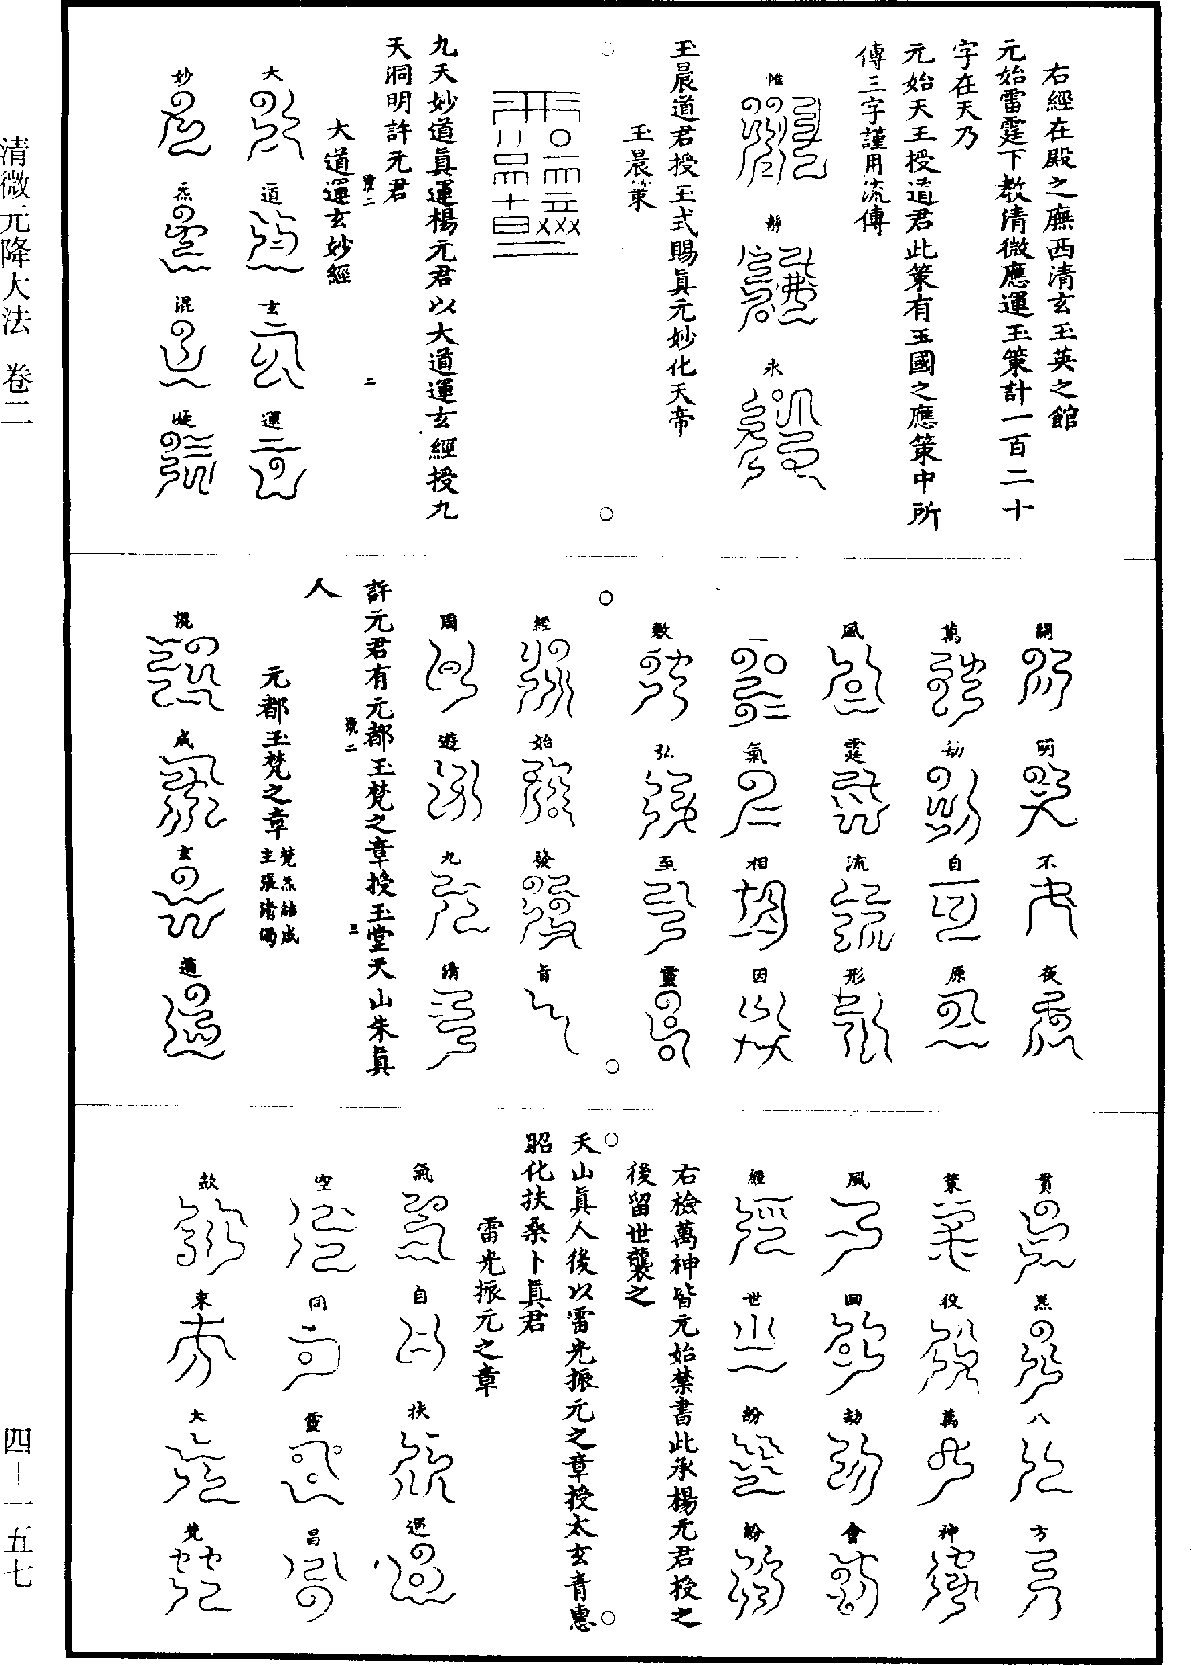 清微元降大法 卷二
四—一五七
右經在殿之廡西清玄玉英之館
元始雷霆下教清微應運玉策計一百二十
字在天乃
元始天王授道君此策有玉國之應策中所
傳三字謹用流傳
惟 靜 永
玉晨道君授王式賜真元妙化天帝
玉晨策
九天妙道真運楊元君以大道運玄經授九
天洞明許元君
二
大道運玄妙經
大 道 玄 運
妙 炁 混
開 明 不 夜
萬 劫 自 原
風 霆 流 形
一 氣 相 因
敷 弘 至 靈
經 始 發 旨
周 遊 九 清
許元君有元都玉梵之章授玉堂天山朱真
三
人
元都玉梵之章
梵炁結成
主張清濁
混 成 玄 道
貫 炁 八 方
葉 役 萬 神
風 回 劫 會
經 世 紛 紛
右檢萬神皆元始禁書此承楊元君授之
後留世襲之
天山真人後以雷光振元之章授太玄青惠
昭化扶桑卜真君
雷光振元之章
氣 自 扶 遐
空 同 靈 昌
故 東 大 梵